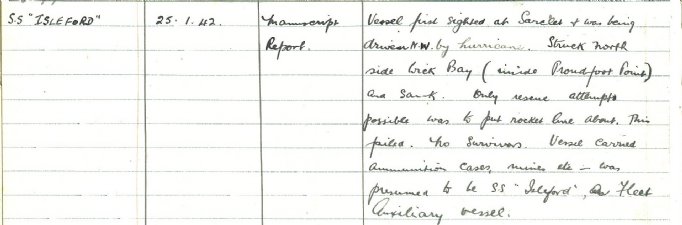 S.S "ISLEFORD"
25.1.42.
Manuscript
Report.
Vessel first sighted at Sarclet & was being
driven N.W. by hurricane. Struck North
side Wick Bay (inside Proudfoot Point)
and Sank. Only rescue attempt
possible was to put rocket line about. This
failed. No Survivors. Vessel carried
Ammunition Cases, mines etc – was
presumed to be SS "Isleford", Fleet
Auxiliary vessel.